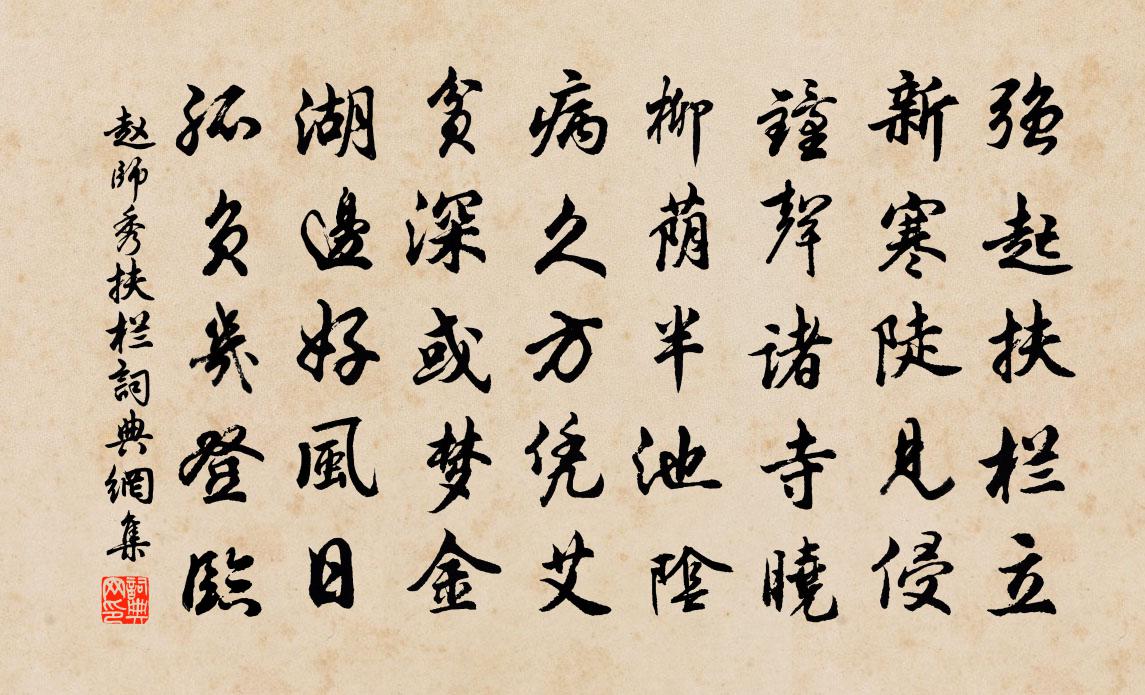 强起扶栏立
新寒陡见侵
鐘聲诸寺曉
柳荫半池陰
病久方凭艾
貧深或梦金
湖邊好風日
孤負幾登臨
赵師秀扶栏詞典網集
詞典网印